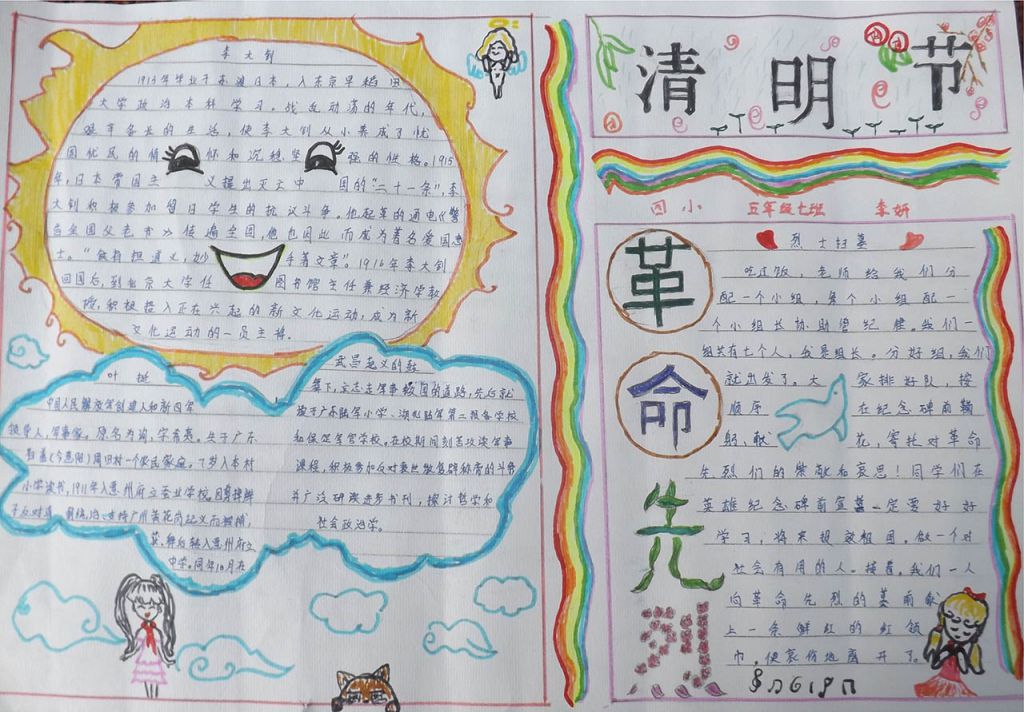 李大钊
1913年毕业于东渡日本,入东京早稻田
大学政治本科学习。战乱动荡的年代,
艰辛备尝的生活,使李大钊从小养成了忧
国忧民的情怀和沉稳坚强的性格。1915
年,日本帝国主义提出灭亡中国的"二十一条",李
大钊积极参加留日学生的抗议斗争。他起草的通电《警
告全国父老书》传遍全国,他也因此而成为著名爱国志
士。"铁肩担道义,妙手著文章"。1916年李大钊
回国后,到北京大学任图书馆主任兼经济学教
授,积极投入正在兴起的新文化运动,成为新
文化运动的一员主将。
叶挺
中国人民解放军创建人和新四军
领导人,军事家。原名为询,字希夷。生于广东
归善(今惠阳)周田村一个农民家庭。7岁入本村
小学读书,1911年入惠州府立蚕业学校,因剪掉辫
府立
中学。同年10月在
武昌起义的鼓
舞下,立志走军事救国的道路,先后就
读于广东陆军小学、湖北陆军第二预备学校
和保定军官学校。在校期间刻苦攻读军事
课程,积极参加反对袁世凯复辟称帝的斗争
并广泛研读进步书刊,探讨哲学和
社会政治学。
清明节
回小 五年级七班 李妍
革命先烈
烈士扫墓
吃过饭,老师给我们分
配一个小组,每个小组配一
个小组长协助管纪律。我们一
组共有七个人,我是组长。分好组,我们
就出发了。大家排好队,按
顺序在纪念碑前鞠
躬,献花,寄托对革命
先烈们的崇敬和哀思!同学们在
英雄纪念碑前宣誓一定要好好
学习,将来报效祖国。做一个对
社会有用的人。接着,我们一人
向革命先烈的墓前献
上一条鲜红的红领
巾。便哀伤地离开了。